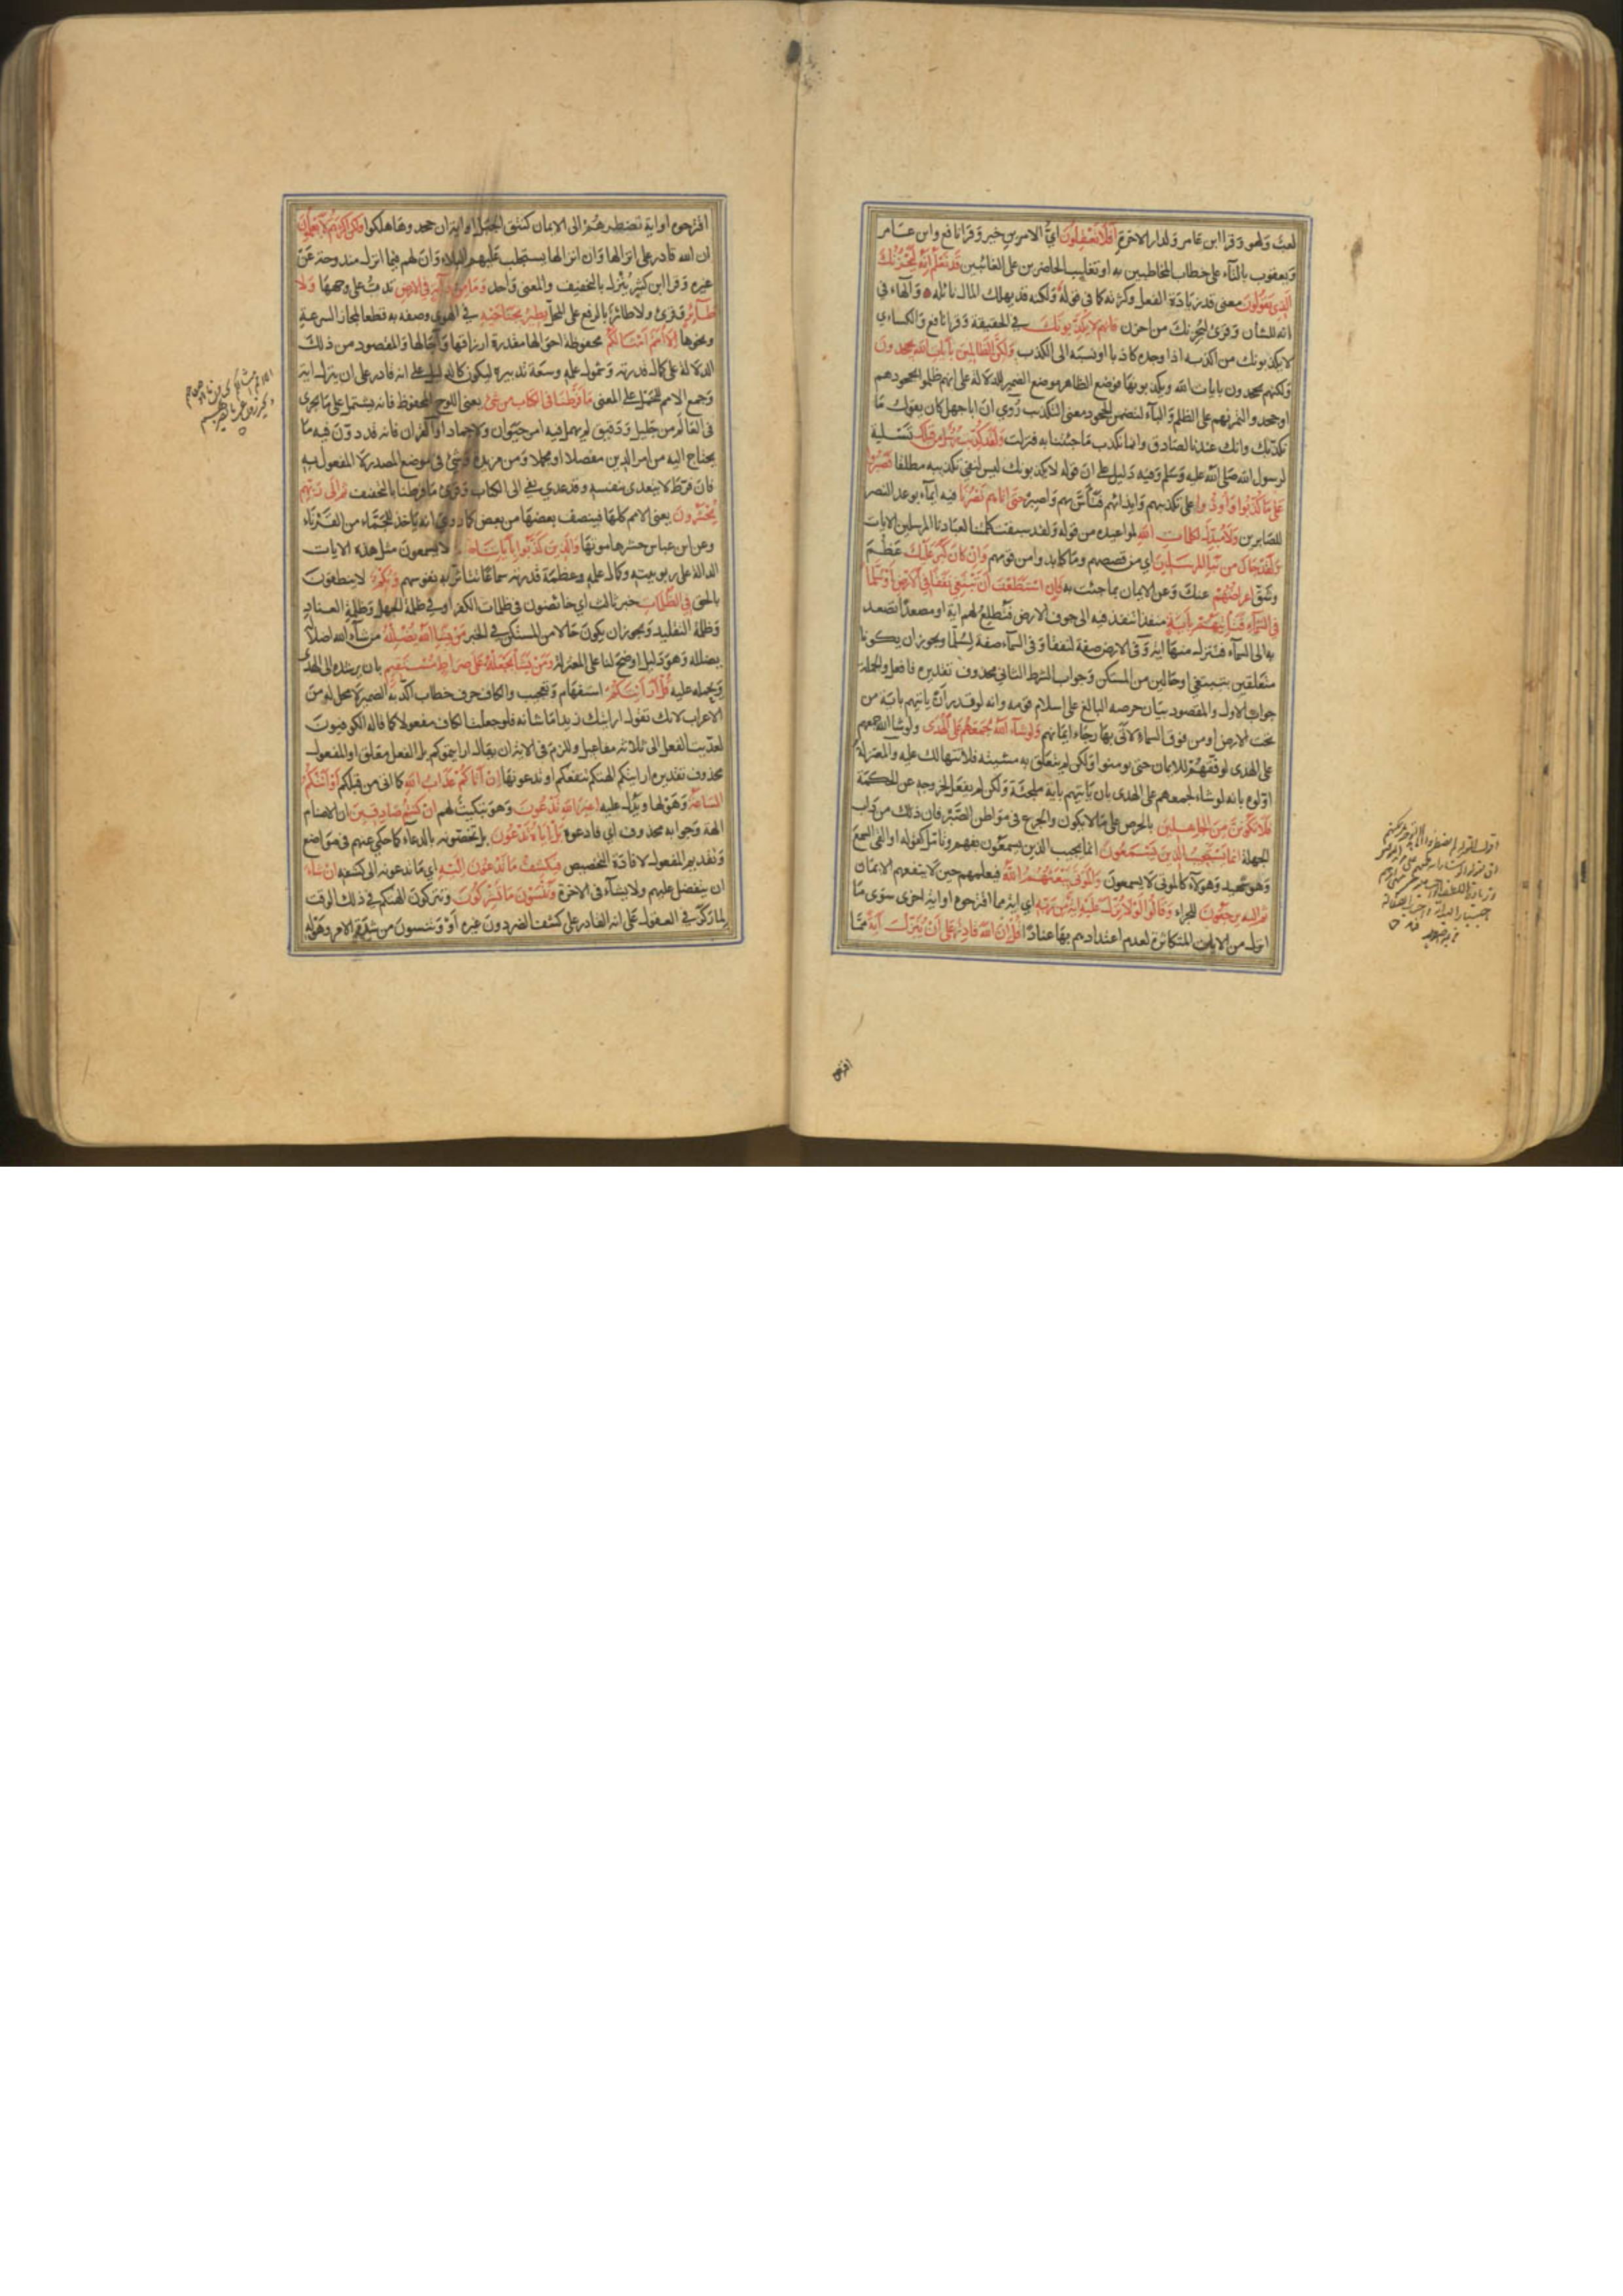 لعب ولهو وقرا ابن عامر ولدار الاخرة افلا تعقلون اي الامرين خير وقرا نافع وابن عامر
ويعقوب بالتاء على خطاب المخاطبين به او تغليب الحاضرين على الغائبين قد نعلم انه ليحزنك
الذي يقولون معنى قد زيادة الفعل وكثرته كما في قوله ولكنه قد يهلك المال نائله والهاء في
انه للشان وقرئ ليحزنك من احزن فانهم لا يكذبونك في الحقيقة وقرا نافع والكسائي
لا يكذبونك من اكذبه اذا وجده كاذبا او نسبه الى الكذب ولكن الظالمين بآيات الله يجحدون
ولكنهم يجحدون بايات الله ويكذبونها فوضع الظاهر موضع الضمير للدلالة على انهم ظلموا بجحودهم
او جحدوا لتمرنهم على الظلم والبآء لتضمن الجحود معنى التكذيب رُوي ان ابا جهل كان يقول ما
نكذبك وانك عندنا لصادق وانما نكذب ما جئتنا به فنزلت ولقد كذبت رسل من قبلك تسلية
لرسول الله صلى الله عليه وسلم وفيه دليل على ان قوله لا يكذبونك ليس لنفي تكذيبه مطلقا فصبروا
على ما كذبوا واوذوا على تكذيبهم وايذائهم فتأسّ بهم واصبر حتى اتاهم نصرنا فيه ايماء بوعد النصر
للصابرين ولا مبدل لكلمات الله لمواعيده من قوله ولقد سبقت كلمتنا لعبادنا المرسلين الايات
ولقد جاك من نبإ المرسلين اي من قصصهم وما كابدوا من قومهم وان كان كبر عليك عظم
وشق اعراضهم عنك وعن الايمان بما جئت به فان استطعت ان تبتغي نفقا في الارض او سلما
في السماء فتأتيهم بآية منفذا تنفذ فيه الى جوف الارض فتطلع لهم اية او مصعدا تصعد
به الى السمآء فتنزل منها اية وفي الارض صفة لنفقا وفي السمآء صفة لسلما ويجوز ان يكونا
متعلقين بتبتغي او حالين من المستكن وجواب الشرط الثاني محذوف تقديره فافعل والجملة
جواب الاول والمقصود بيان حرصه البالغ على اسلام قومه وانه لو قدر ان ياتيهم باية من
تحت الارض او من فوق السماء لاتى بها رجاء ايمانهم ولو شآء الله لجمعهم على الهدى ولو شا الله جمعهم
على الهدى لوفقهم للايمان حتى يومنوا ولكن لم يتعلق به مشيئته فلا تتهالك عليه والمعتزلة
اولوه بانه لو شاء لجمعهم على الهدى بان ياتيهم باية ملجئة ولكن لم يفعل لخروجه عن الحكمة
فلا تكونن من الجاهلين بالحرص على ما لا يكون والجزع في مواطن الصبر فان ذلك من داب
الجهلة انما يستجيب الذين يسمعون انما يجيب الذين يسمعون بفهم وتامل كقوله او القى السمع
وهو شهيد وهؤلآء كالموتى لا يسمعون والموتى يبعثهم الله فيعلمهم حين لا ينفعهم الايمان
ثم اليه يرجعون للجزاء وقالوا لولا نزل عليه اية من ربه اي اية مما اقترحوه او اية اخرى سوى ما
انزل من الايات المتكاثرة لعدم اعتدادهم بها عنادا قل ان الله قادر على ان ينزل آية مما
اقترحوه او اية تضطرهم الى الايمان كنتق الجبل او اية ان جحدوها هلكوا ولكن اكثرهم لا يعلمون
ان الله قادر على انزالها وان انزالها يستجلب عليهم البلاء وان لهم فيما انزل مندوحة عن
غيره وقرا ابن كثير ينزل بالتخفيف والمعنى واحد وما من دآبة في الارض تدب على وجهها ولا
طآئر وقرئ ولا طائر بالرفع على المحل يطير بجناحيه في الهوى وصفه به قطعا لمجاز السرعة
ونحوها الا امم امثالكم محفوظة احوالها مقدرة ارزاقها وآجالها والمقصود من ذلك
الدلالة على كمال قدرته وشمول علمه وسعة تدبيره ليكون كالدليل على انه قادر على ان ينزل اية
وجمع الامم للحمل على المعنى ما فرطنا في الكتاب من شئ يعني اللوح المحفوظ فانه يشتمل على ما يجري
في العالم من جليل ودقيق لم يهمل فيه امر حيوان ولا جماد او القران فانه قد دون فيه ما
يحتاج اليه من امر الدين مفصلا او مجملا ومن مزيدة وشئ في موضع المصدر لا المفعول به
فان فرط لا يتعدى بنفسه وقد عدي بفي الى الكتاب وقرئ ما فرطنا بالتخفيف ثم الى ربهم
يحشرون يعني الامم كلها فينصف بعضها من بعض كما روي انه ياخذ للجماء من القرناء
وعن ابن عباس حشرها موتها والذين كذبوا بآياتنا صم لا يسمعون مثل هذه الايات
الدالة على ربوبيته وكمال علمه وعظمة قدرته سماعا تتاثر به نفوسهم وبكم لا ينطقون
بالحق في الظلمات خبر ثالث اي خابطون في ظلمات الكفر او في ظلمة الجهل وظلمة العناد
وظلمة التقليد ويجوز ان يكون حالا من المستكن في الخبر من يشا الله يضلله من يشآء الله اضلاله
يضلله وهو دليل اوضح لنا على المعتزلة ومن يشا يجعله على صراط مستقيم بان يرشده الى الهدى
ويحمله عليه قل ارايتكم استفهام وتعجيب والكاف حرف خطاب اكد به الضمير لا محل له من
الاعراب لانك تقول ارايتك زيدا ما شانه فلو جعلت الكاف مفعولا كما قاله الكوفيون
لعديت الفعل الى ثلاثة مفاعيل وللزم في الاية ان يقال ارايتموكم بل الفعل معلق او المفعول
محذوف تقديره ارايتكم الهتكم تنفعكم اذ تدعونها ان اتاكم عذاب الله كما اتى من قبلكم او اتتكم
الساعة وهولها ويدل عليه اغير الله تدعون وهو تبكيت لهم ان كنتم صادقين ان الاصنام
الهة وجوابه محذوف اي فادعوه بل اياه تدعون بل تخصونه بالدعاء كما حكي عنهم في مواضع
وتقديم المفعول لافادة التخصيص فيكشف ما تدعون اليه اي ما تدعونه الى كشفه ان شاء
ان يتفضل عليهم ولا يشآء في الاخرة وتنسون ما تشركون وتتركون الهتكم في ذلك الوقت
لما ركز في العقول على انه القادر على كشف الضر دون غيره او وتنسون من شدة الامر وهوله